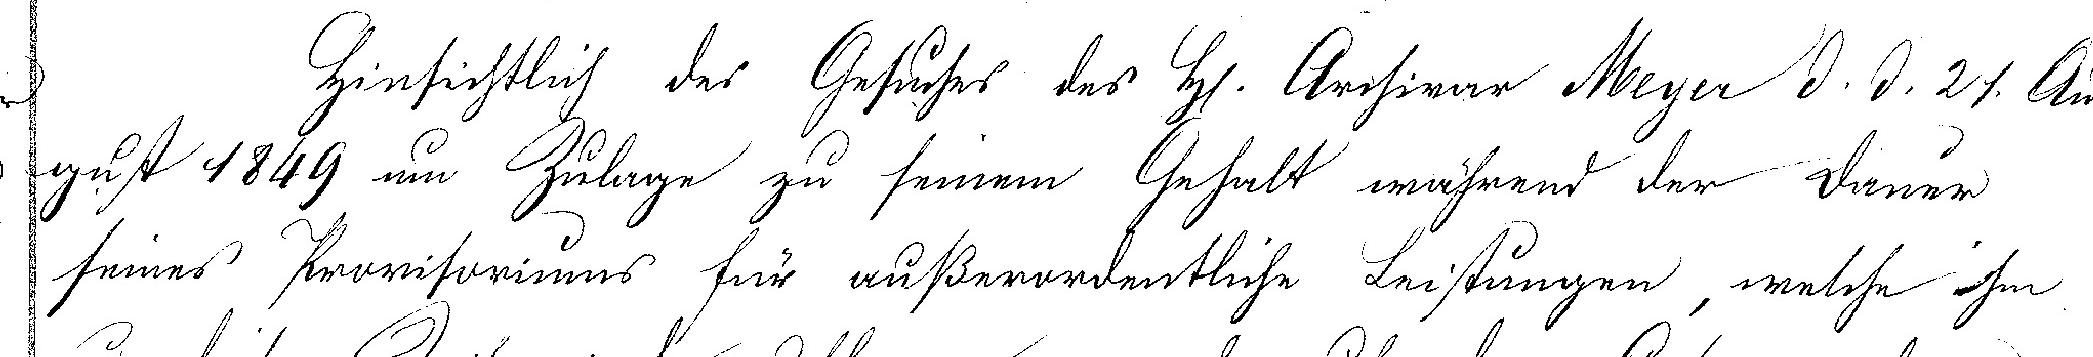 Hinsichtlich des Gesuches des Hr. Archivar Meyer d. d. 21. Au
gust 1849 um Zulage zu seinem Gehalt während der Dauer
seines Provisoriums für außerordentliche Leistungen, welche ihm